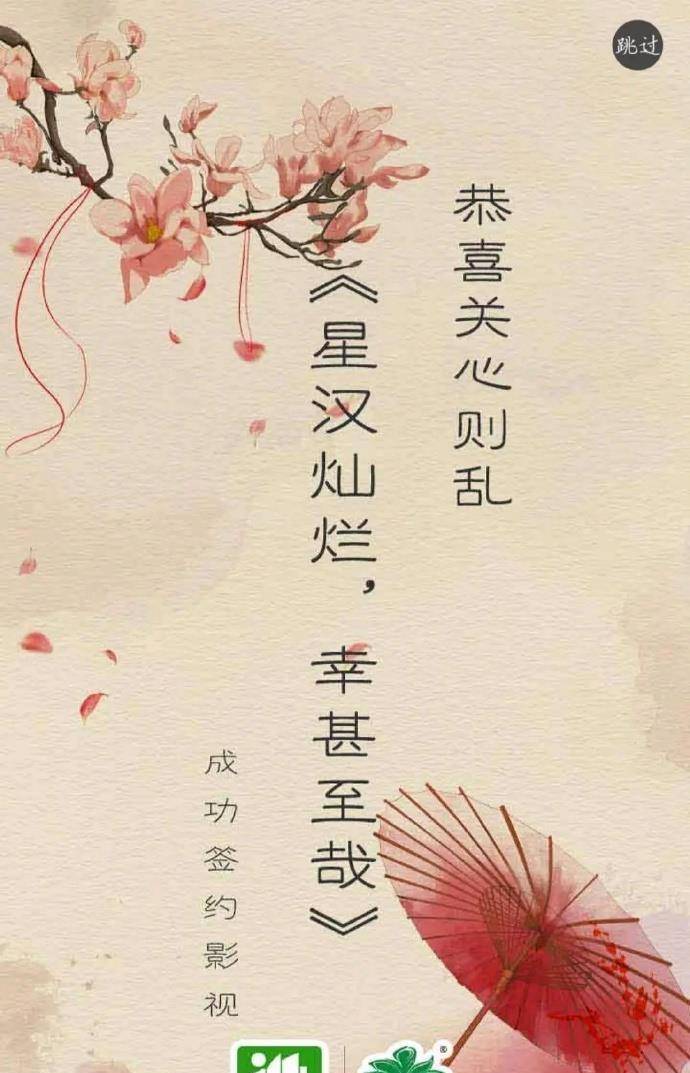 跳过
恭喜关心则乱
《星汉灿烂，幸甚至哉》
成功签约影视
®